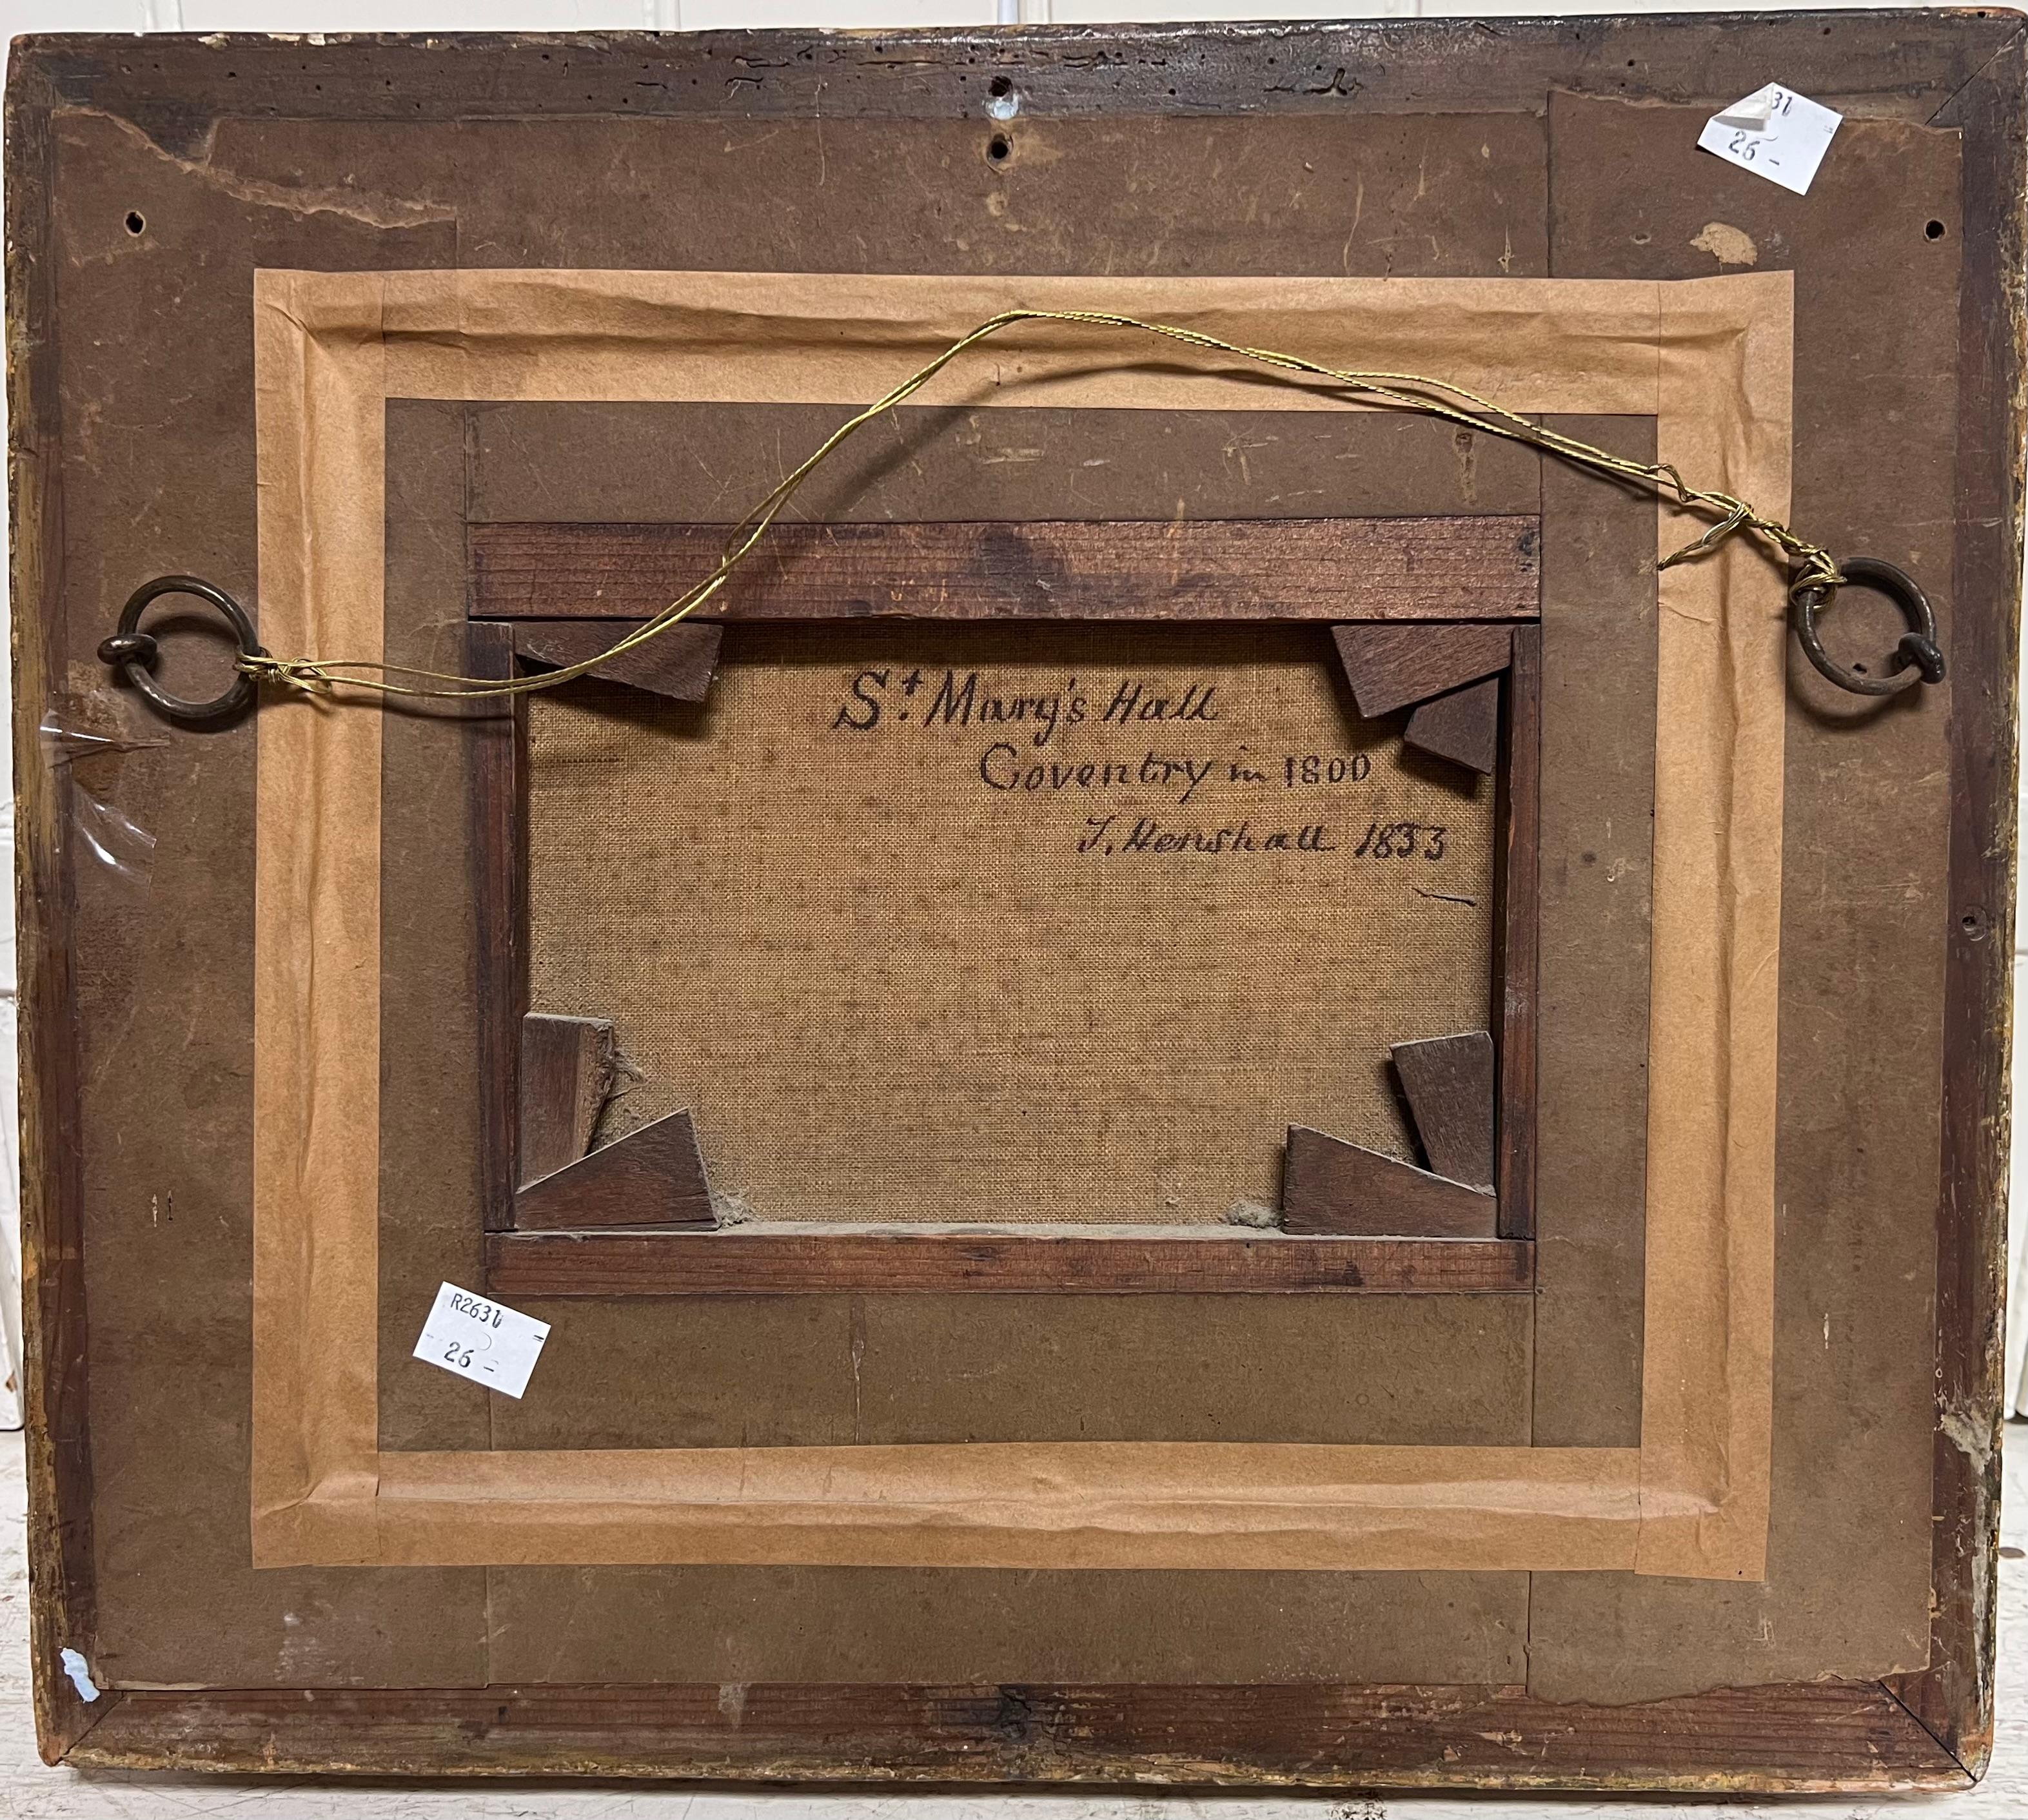 31
26 -
St. Mary's Hall
Coventry in 1800
J. Henshall 1833
R2631
26 -